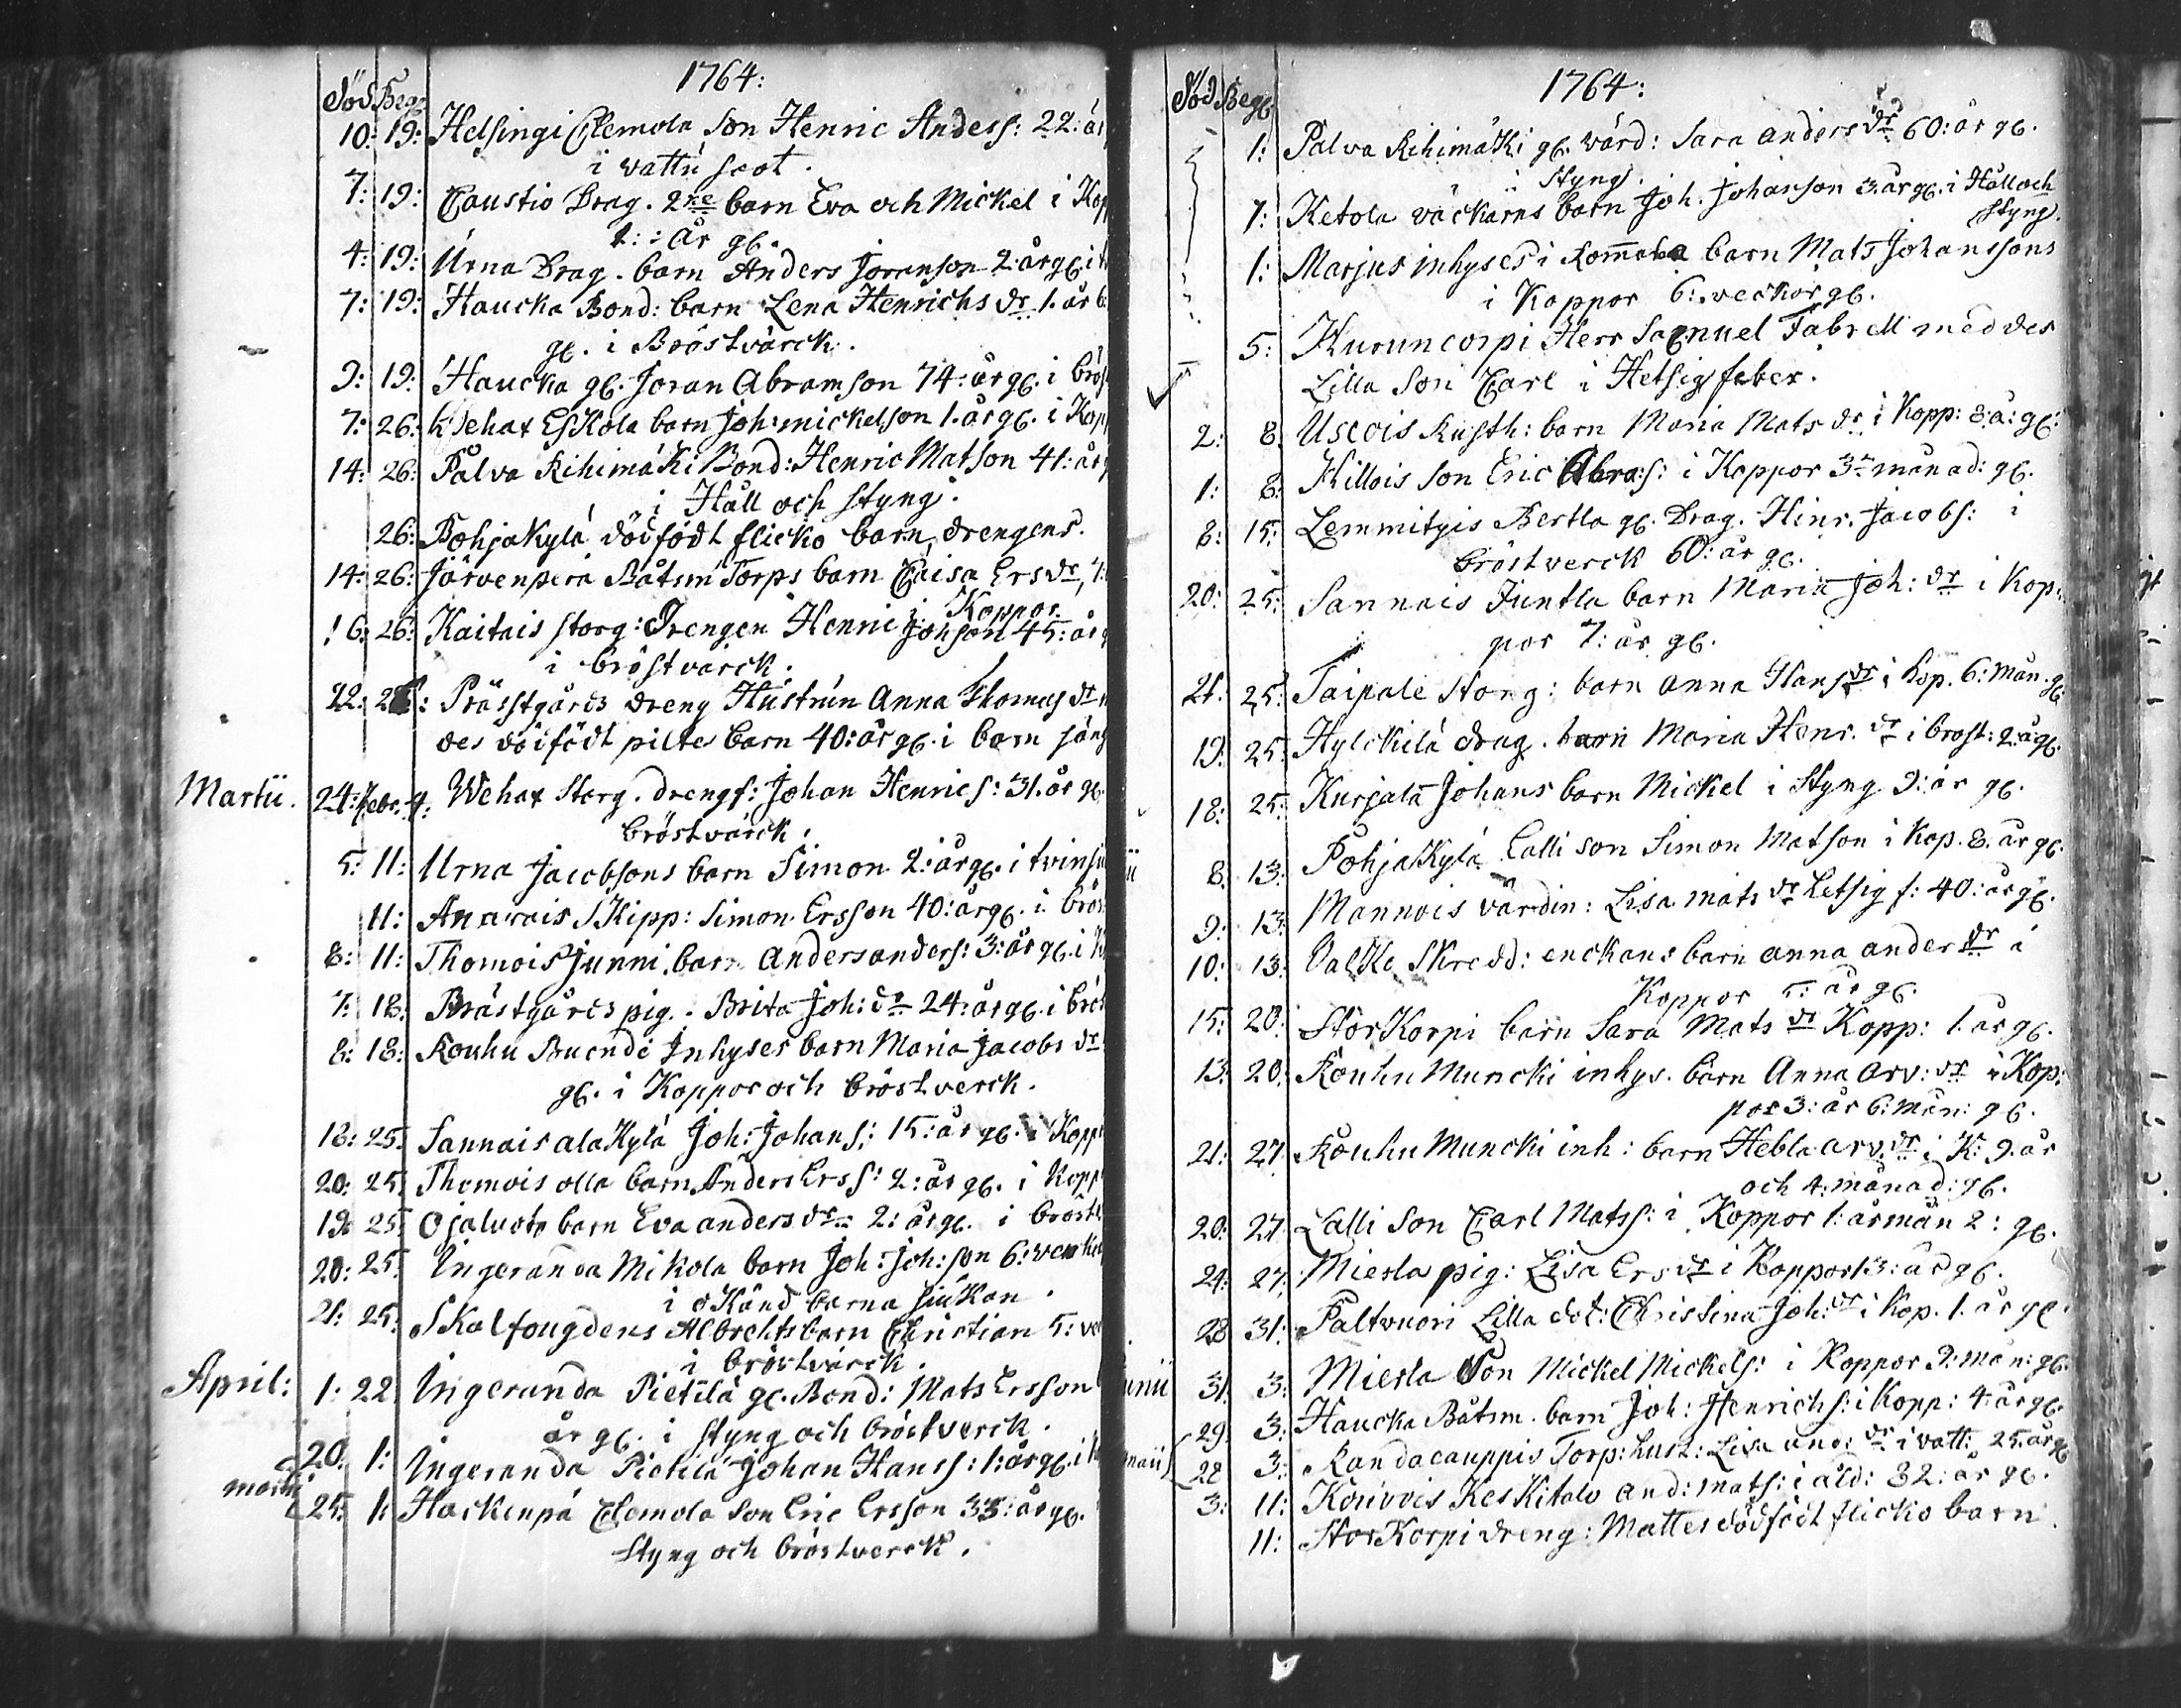 1764:
Död Begr
10: 19: Helsingi Clemola Son Henric Anderss: 22: år
i vattu soot.
7: 19: Caustio Drag. 2ne barn Eva och Mickel i Kop
1: år gl.
4: 19: Urna Drag. barn Anders Joranson 2: år gl. i
7: 19: Haucka Bond: barn Lena Henrichs dr 1. år
gl. i Bröstvärck.
9: 19: Haucka gl. Joran Abramson 74: år gl. i brös
7: 26: Wehax Eskola barn Joh: mickelson 1. år gl. i Kop
14: 26: Palva Rihimäki Bond: Henric Matson 41: år
i Håll och styng.
26: Pohjakylä dödfödt flicko barn, drengens.
14: 26: Järvenperä Båtsm Torps barn Caisa Ers dr,
i Koppor
16: 26: Kaitais storg: Drengen Henric Johson 45: år
i bröstvärck.
22: Prässtgårds dreng Hustrun Anna Thomas dr
des dödfödt piltes barn 40: år gl. i barn säng
Martii. 24: Febr. 4. Wehax Storg. drengf: Johan Henrics: 31. år gl.
bröstvärck.
5: 11: Urna Jacobsons barn Simon 2: år gl. i tvinsu
11: Anavais Skipp: Simon Ersson 40: år gl. i brös
8: 11: Thomois Junni barn Anders anders: 3: år gl. i
7: 18: Prästgårds pig. Brita Joh: dr 24: år gl. i brös
8: 18: Kouhu Buendi Inhyses barn Maria Jacobs dr
gl. i Koppor och bröstverck.
18: 25. Sannais alakylä Joh: Johans: 15: år gl. i Kopp
20: 25. Thomois olla barn Anders Erss: 2: år gl. i Kopp
19: 25. Ojaluoto barn Eva anders dr 2: år gl. i bröst
20: 25. Ingeranda Mikola barn Joh: Joh: son 6: veckor
i okänd barna siukan.
21: 25. Skalfougdens Albrechts barn Christian 5: ve
i bröstvärck.
April: 1. 22. Ingeranda Pietilä gl. Bond: Mats Ersson
år gl. i styng och bröstverck.
20. 1: Ingeranda Pietilä Johan Hanss: 1: år gl. i
martii
25. 1: Hackenpä Clemola Son Eric Ersson 33: år gl.
styng och bröstverck.
1764:
Död Begr
1: Palva Rihimäki gl. värd: Sara anders dr 60: år gl.
i Styng.
7: Ketola väckarns barn Joh. Johanson 3: år gl. i Håll och
styng.
1: Marjus inhyses i barn Mats Johanssons
i Koppor 6: veckor gl.
5: Kuruncorpi Herr Samuel Fabrell med des
Lilla Son Carl i Hetsig feber.
2: 8. Uscois Rusth: barn Maria Mats dr i Kopp: 8: å: gl:
1: 8: Killois Son Eric Abra:s: i Koppor 3: månad: gl.
8: 15: Lemmityis Bertla gl. Drag. Hinr. Jacobs: i
bröstverck 60: år gl.
20: 25: Sannais Juntla barn Maria Joh: dr i Kop:
por 7: år gl.
21. 25: Taipale Storg: barn Anna Hans dr i Kop. 6: mån. gl.
19: 25: Hylckilä drag. barn Maria Henr. dr i bröst: 2: å gl.
18: 25: Kurjala Johans barn Mickel i Styng 9: år gl.
8: 13: Pohjakylä Calli son Simon Matson i Kop. 8. år gl.
9: 13: Mannois värdin: Lisa mats dr Letsig f: 40: år gl.
10: 13: Valke Skredd: enckans barn anna ander dr i
Koppor 5: år gl.
15: 20: Storkorpi barn Sara Mats dr Kopp: 1. år gl.
13: 20: Kouhu Muncki inhys. barn Anna arv: dr i Kop:
por 3: år 6: mån: gl.
21: 27 Kouhu Muncki inh: barn Hebla arv. dr i K: 9. år
och 4: månad: gl.
20: 27. Lalli Son Carl Matss: i Koppor 1: år mån 2: gl.
24: 27: Miesla pig: Lisa Ers dr i Koppor 13: år gl.
28 31: Paltvuori Lilla dot: Christina Joh: dr i Kop. 1. år gl.
unii 31. 3: Miesla Son Mickel Mickels: i Koppor 9: mån: gl.
29. 3: Haucka Båtsm. barn Joh: Henrichs: i Kopp: 4: år gl.
maii 28 3: Randacauppis Torp: hust: Lisa and: dr i vatt: 25: år gl
3: 11: Koivois Keskitalo And: mats: i åld: 82: år gl.
11: Storkorpi dreng: Mattes dödfödt flicko barn.